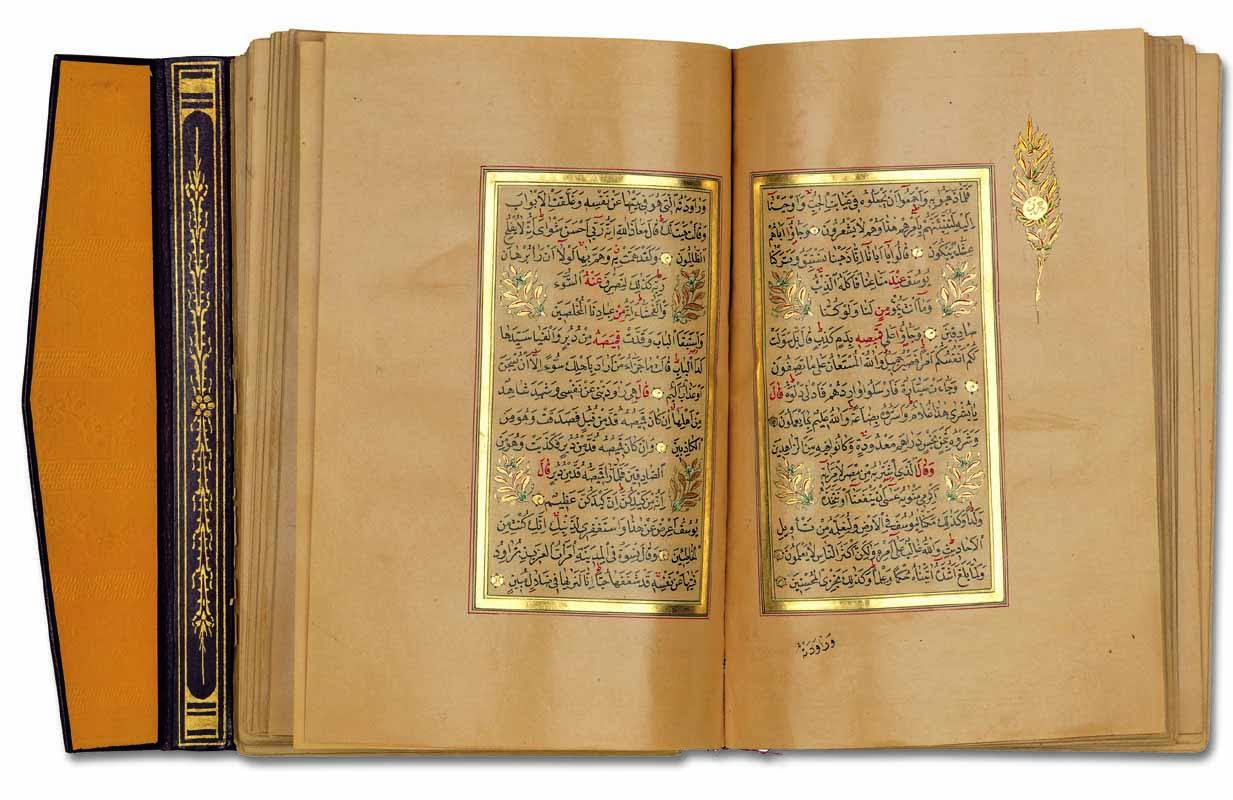 فلما ذهبوا به واجمعوا ان يجعلوه فى غيابت الجب واوحينا
اليه لتنبئنهم بامرهم هذا وهم لا يشعرون وجاؤا اباهم
عشاء يبكون قالوا يا ابانا انا ذهبنا نستبق وتركنا
يوسف عند متاعنا فاكله الذئب
وما انت بمؤمن لنا ولو كنا
صادقين وجاؤا على قميصه بدم كذب قال بل سولت
لكم انفسكم امرا فصبر جميل والله المستعان على ما تصفون
وجاءت سيارة فارسلوا واردهم فادلى دلوه قال
يا بشرى هذا غلام واسروه بضاعة والله عليم بما يعملون
وشروه بثمن بخس دراهم معدودة وكانوا فيه من الزاهدين
وقال الذى اشتريه من مصر لامرأته
اكرمى مثويه عسى ان ينفعنا او نتخذه
ولدا وكذلك مكنا ليوسف فى الارض ولنعلمه من تأويل
الاحاديث والله غالب على امره ولكن اكثر الناس لا يعلمون
ولما بلغ اشده اتيناه حكما وعلما وكذلك نجزى المحسنين
وراودته
وراودته التى هو فى بيتها عن نفسه وغلقت الابواب
وقالت هيت لك قال معاذ الله انه ربى احسن مثواى انه لا يفلح
الظالمون ولقد همت به وهم بها لولا ان را برهان
ربه كذلك لنصرف عنه السوء
والفحشاء انه من عبادنا المخلصين
واستبقا الباب وقدت قميصه من دبر والفيا سيدها
لدا الباب قالت ما جزاء من اراد باهلك سوء الا ان يسجن
او عذاب اليم قال هى راودتنى عن نفسى وشهد شاهد
من اهلها ان كان قميصه قد من قبل فصدقت وهو من
الكاذبين وان كان قميصه قد من دبر فكذبت وهو من
الصادقين فلما را قميصه قد من دبر قال
انه من كيدكن ان كيدكن عظيم
يوسف اعرض عن هذا واستغفرى لذنبك انك كنت من
الخاطئين وقال نسوة فى المدينة امرأت العزيز تراود
فتيها عن نفسه قد شغفها حبا انا لنريها فى ضلال مبين